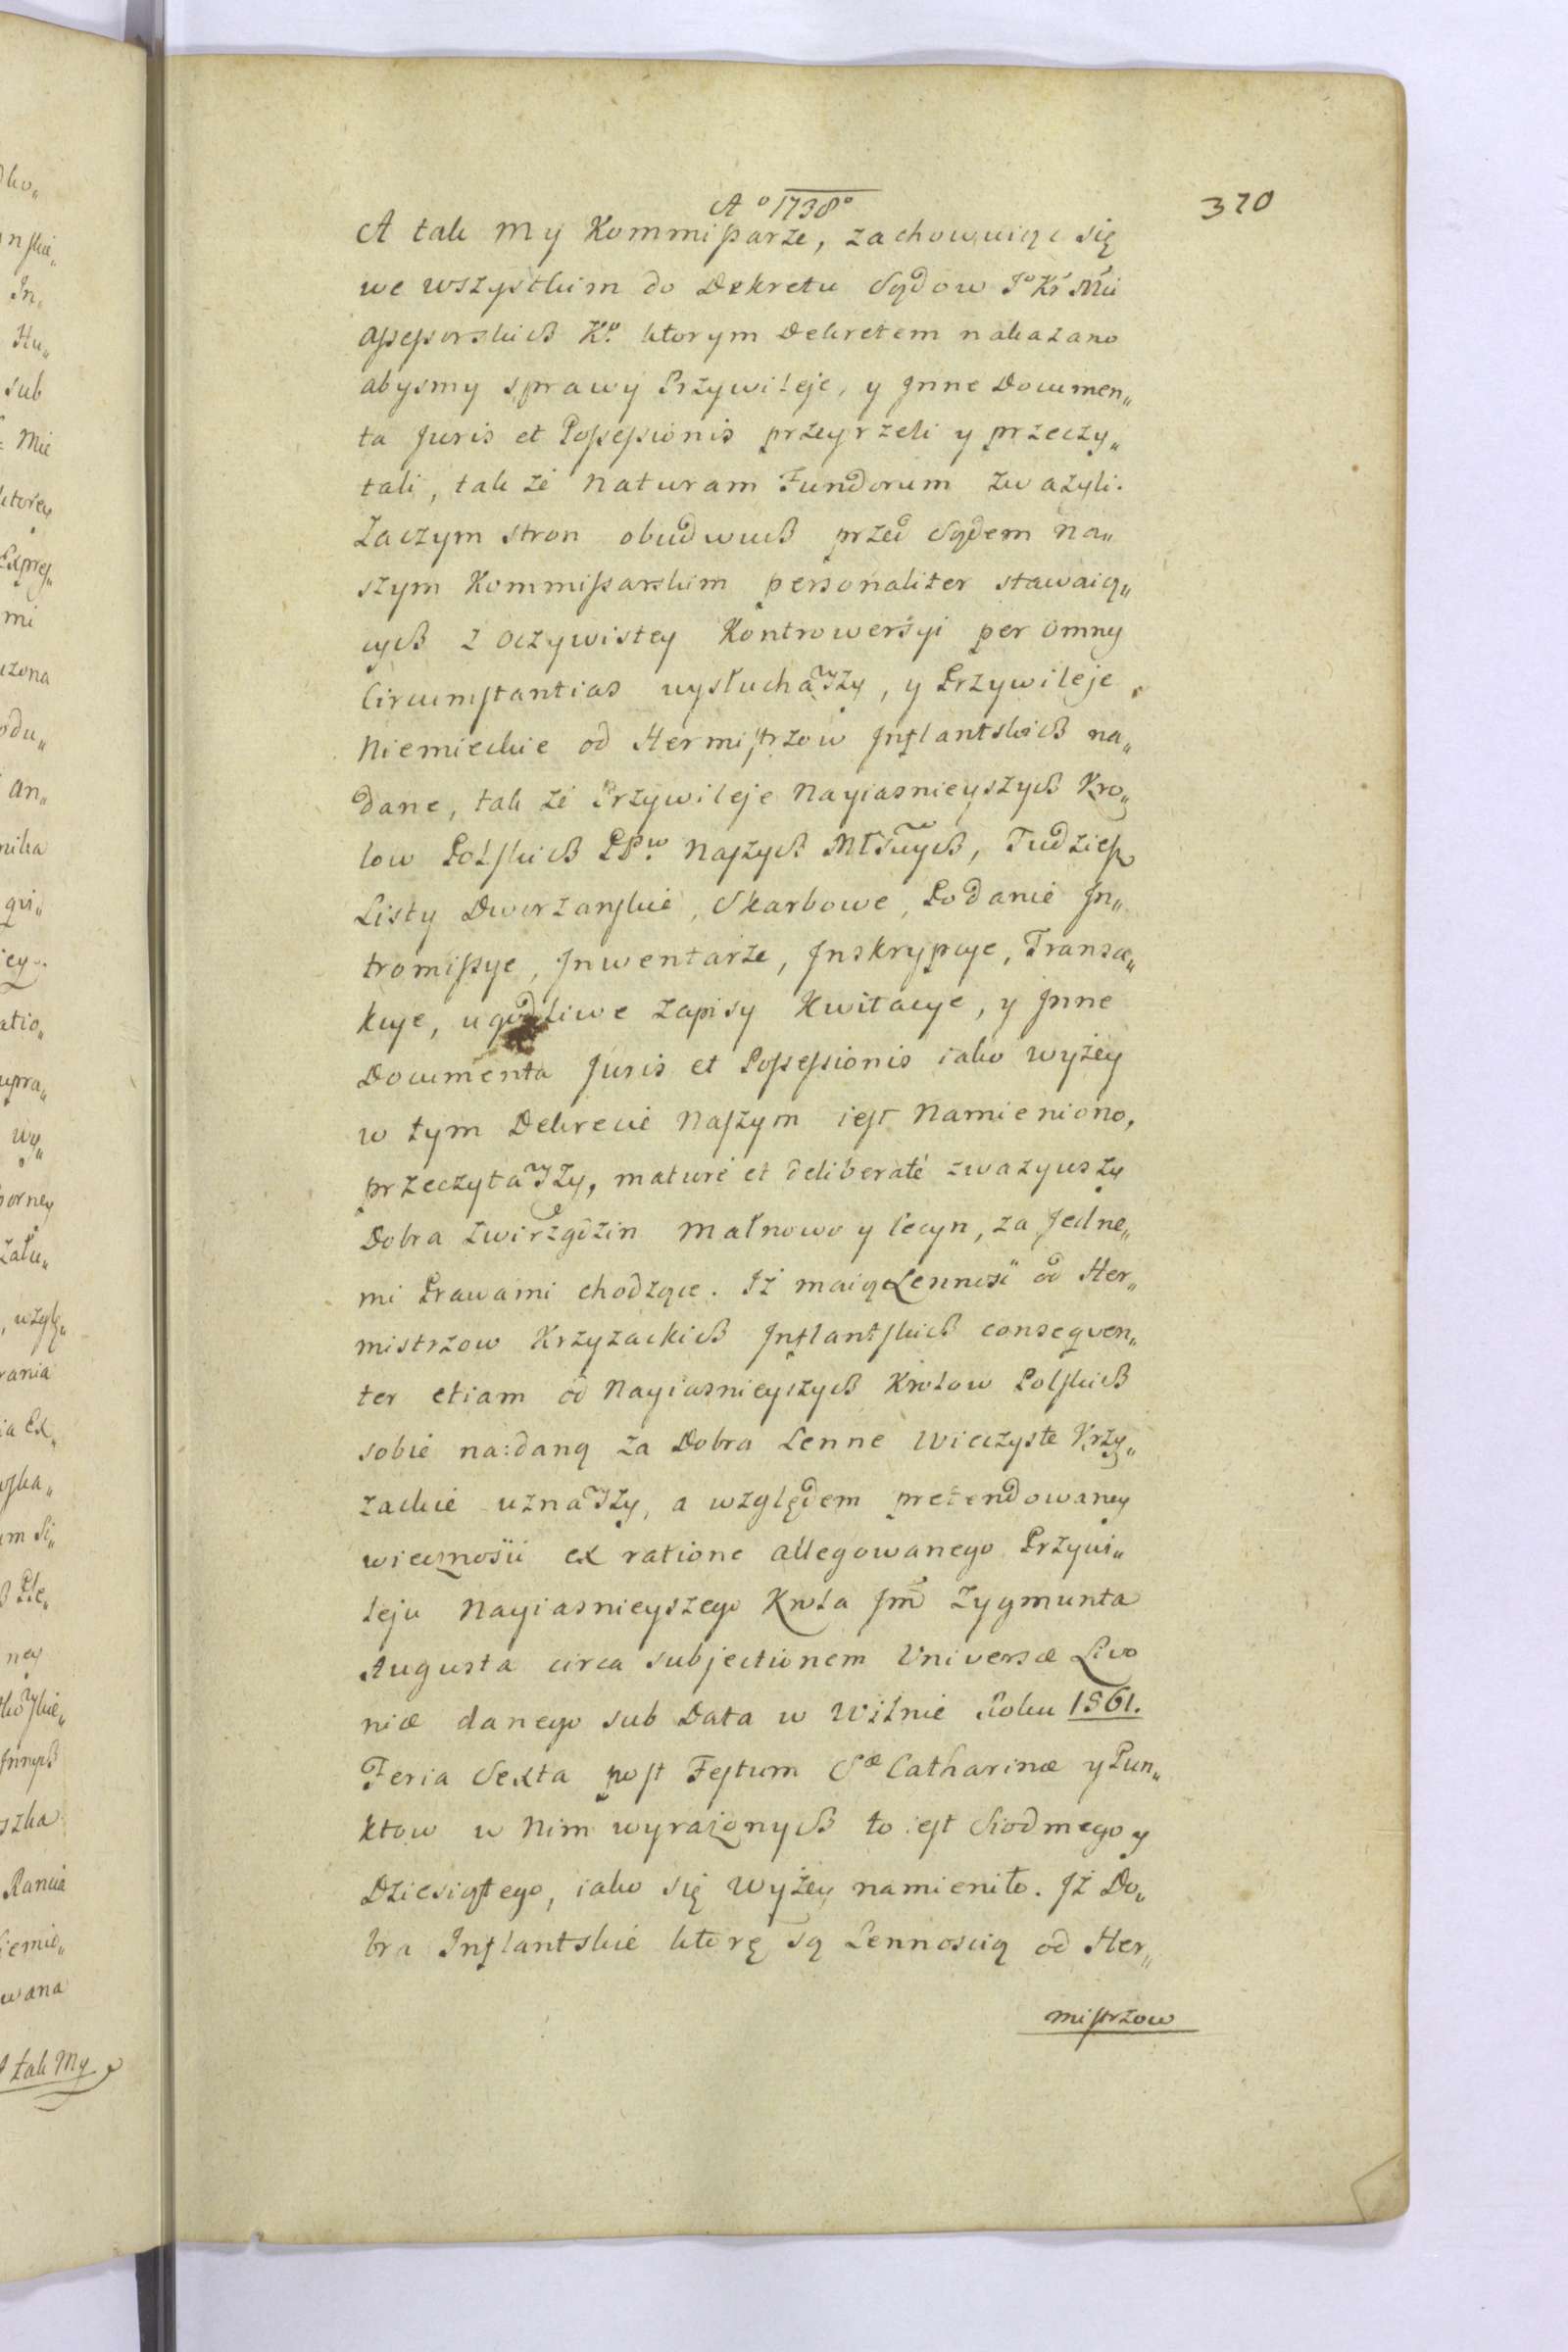 Aº 1738º
370
A tak my Kommißarze, zachowuiąc się
we wszystkim do Dekretu Sądow Jº Kr Mci
Assessorskich Kº. ktorym Dekretem nakazano
abysmy sprawy Przywileje, y Inne Documen„
ta Juris et Possessionis przeyrzeli y przeczy„
tali, tak ze Naturam Fundorum zwazyli.
Zaczym stron obudwuch przed Sądem na„
szym Kommissarskim personaliter stawaią„
cych z oczywistey Kontrowersyi per omny
Circumstantias wysłuchawszy, y Przywileje
Niemieckie od Hermistrzow Inflantskich na„
dane, tak ze Przywileje Nayiasnieyszych Kro„
low Polskich PPw. Naszych Młsciwych, Tudziesz
Listy Dworzanskie, Skarbowe, Podanie In„
tromissye, Inwentarze, Inskrypcye, Transa„
kcye, ugodliwe Zapisy Kwitacye, y Inne
Documenta Juris et Possessionis iako wyżey
w tym Dekrecie Naszym iest Namieniono,
przeczytawszy, maturé et deliberaté zwazywszy
Dobra Zwirzgdzin Małnowo y Lecyn, za Jedne„
mi Prawami chodzące. Iż maią Lennosć od Her„
mistrzow Krzyzackich Inflantskich conseqven„
ter etiam od Nayiasnieyszych Krolow Polskich
sobie na:daną za Dobra Lenne Wieczyste Krzy„
zackie uznawszy, a względem pretendowaney
wiecznosci ex ratione allegowanego Przywi„
leju Nayiasnieyszego Krola Jmci Zygmunta
Augusta circa subjectionem Universæ Livo
niæ danego sub Data w Wilnie Roku 1561.
Feria Sexta post Festum Sæ Catharinæ y Pun„
ktow w Nim wyrażonych to iest Siodmego y
Dziesiątego, iako się wyżey namieniło. Iż Do„
bra Inflantskie ktorę są Lennoscią od Her„
mistrzow